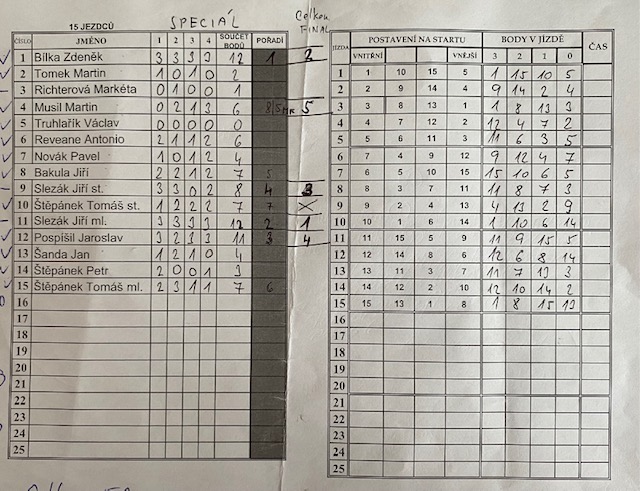 15 JEZDCŮ SPECIÁL Celkov. FINAL
ČÍSLO JMÉNO 1 2 3 4 SOUČET BODŮ POŘADÍ
1 Bílka Zdeněk 3 3 3 3 12 1 2
2 Tomek Martin 1 0 1 0 2
3 Richterová Markéta 0 1 0 0 1
4 Musil Martin 0 2 1 3 6 5
5 Truhlařík Václav 0 0 0 0 0
6 Reveane Antonio 2 1 1 2 6
7 Novák Pavel 1 0 1 2 4
8 Bakula Jiří 2 2 1 2 7 5
9 Slezák Jiří st. 3 3 0 2 8 4 3
10 Štěpánek Tomáš st. 1 2 2 2 7 7 X
11 Slezák Jiří ml. 3 3 3 3 12 2 1
12 Pospíšil Jaroslav 3 2 3 3 11 3 4
13 Šanda Jan 1 2 1 0 4
14 Štěpánek Petr 2 0 0 1 3
15 Štěpánek Tomáš ml. 2 3 1 1 7 6
16
17
18
19
20
21
22
23
24
25
JÍZDA POSTAVENÍ NA STARTU BODY V JÍZDĚ ČAS
VNITŘNÍ VNĚJŠÍ 3 2 1 0
1 1 10 15 5 1 15 10 5
2 2 9 14 4 9 14 2 4
3 3 8 13 1 1 8 13 3
4 4 7 12 2 12 4 7 2
5 5 6 11 3 11 6 3 5
6 7 4 9 12 9 12 4 7
7 6 5 10 15 15 10 6 5
8 8 3 7 11 11 8 7 3
9 9 2 4 13 4 13 2 9
10 10 1 6 14 1 10 6 14
11 11 15 5 9 11 9 15 5
12 12 14 8 6 12 6 8 14
13 13 11 3 7 11 7 13 3
14 14 12 2 10 12 10 14 2
15 15 13 1 8 1 8 15 13
16
17
18
19
20
21
22
23
24
25